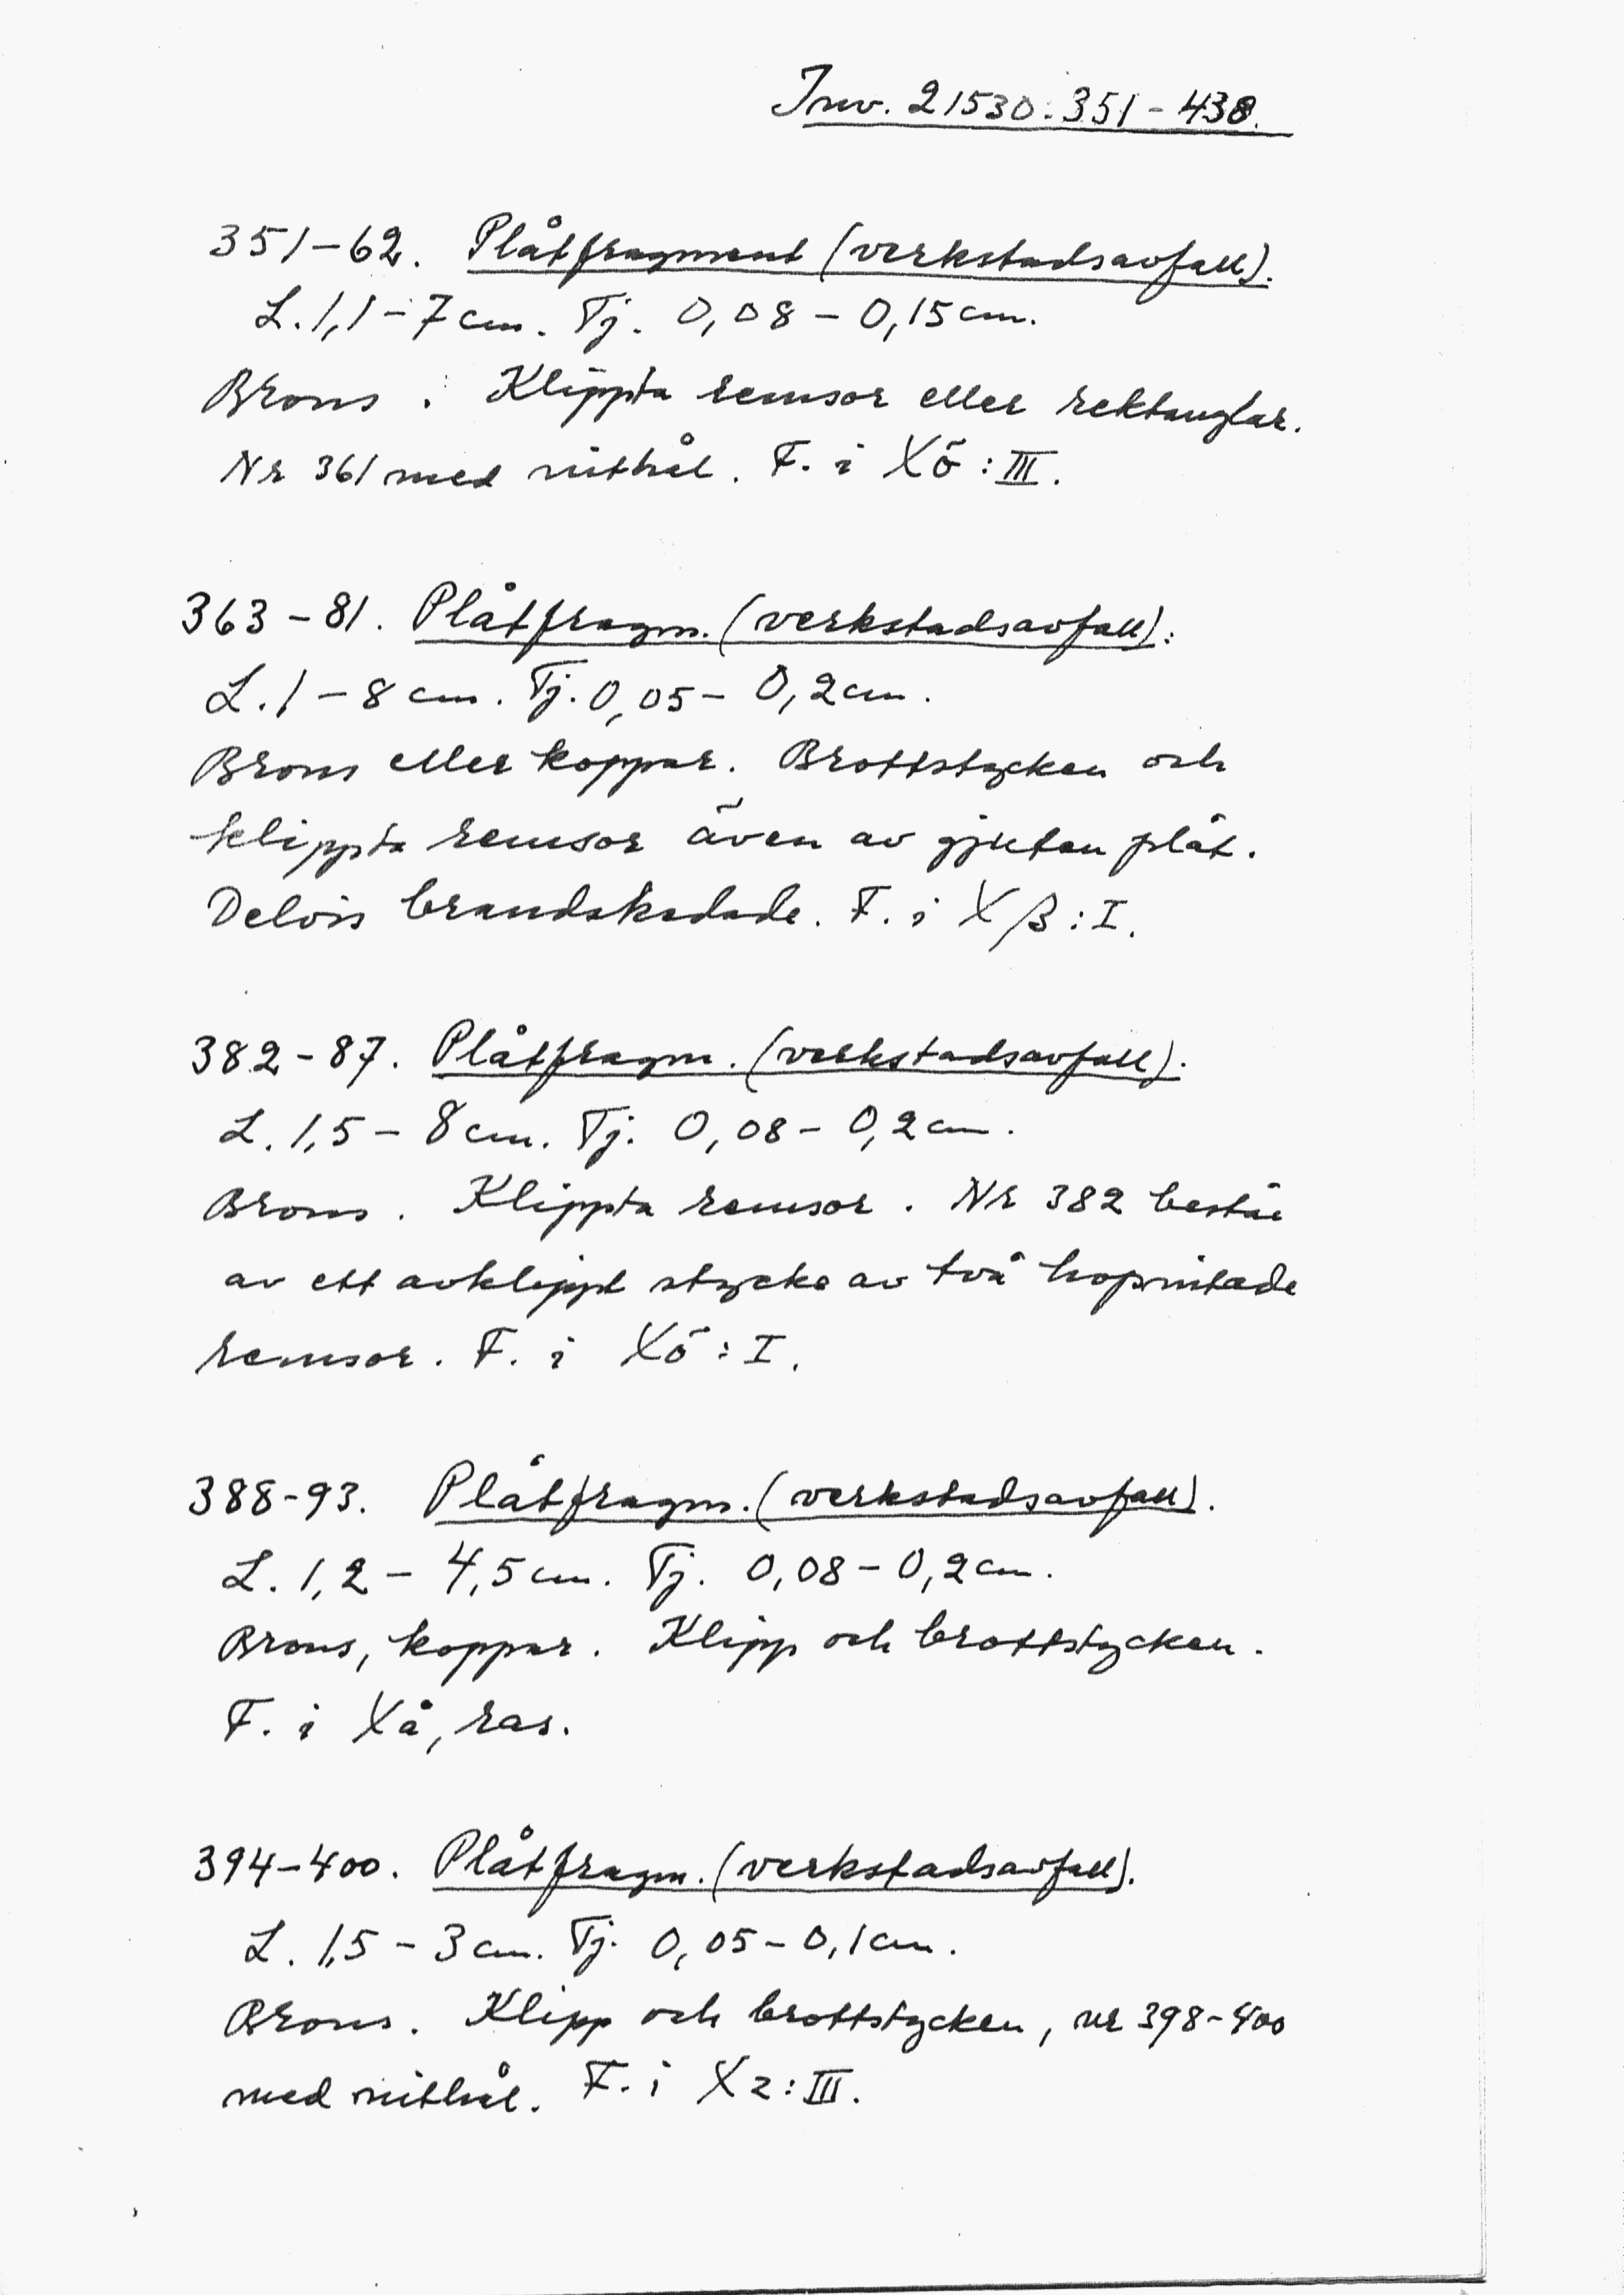 Inv. 21530:351-438.
351-62. Plåtfragment (verkstadsavfall).
L. 1,1-7 cm. Tj. 0,08-0,15 cm.
Brons. Klippta remsor eller rektanglar.
Nr 361 med nithål. F. i Xö:III.
363-81. Plåtfragm. (verkstadsavfall).
L. 1-8 cm. Tj. 0,05-0,2 cm.
Brons eller koppar. Brottstycken och
klippta remsor även av gjuten plåt.
Delvis brandskadade. F. i Xβ:I.
382-87. Plåtfragm. (verkstadsavfall).
L. 1,5-8 cm. Tj. 0,08-0,2 cm.
Brons. Klippta remsor. Nr 382 består
av ett avklippt stycke av två hopnitade
remsor. F. i Xö:I.
388-93. Plåtfragm. (verkstadsavfall).
L. 1,2-4,5 cm. Tj. 0,08-0,2 cm.
Brons, koppar. Klipp och brottstycken.
F. i Xå, ras.
394-400. Plåtfragm. (verkstadsavfall).
L. 1,5-3 cm. Tj. 0,05-0,1 cm.
Brons. Klipp och brottstycken, nr 398-400
med nithål. F. i Xz:III.